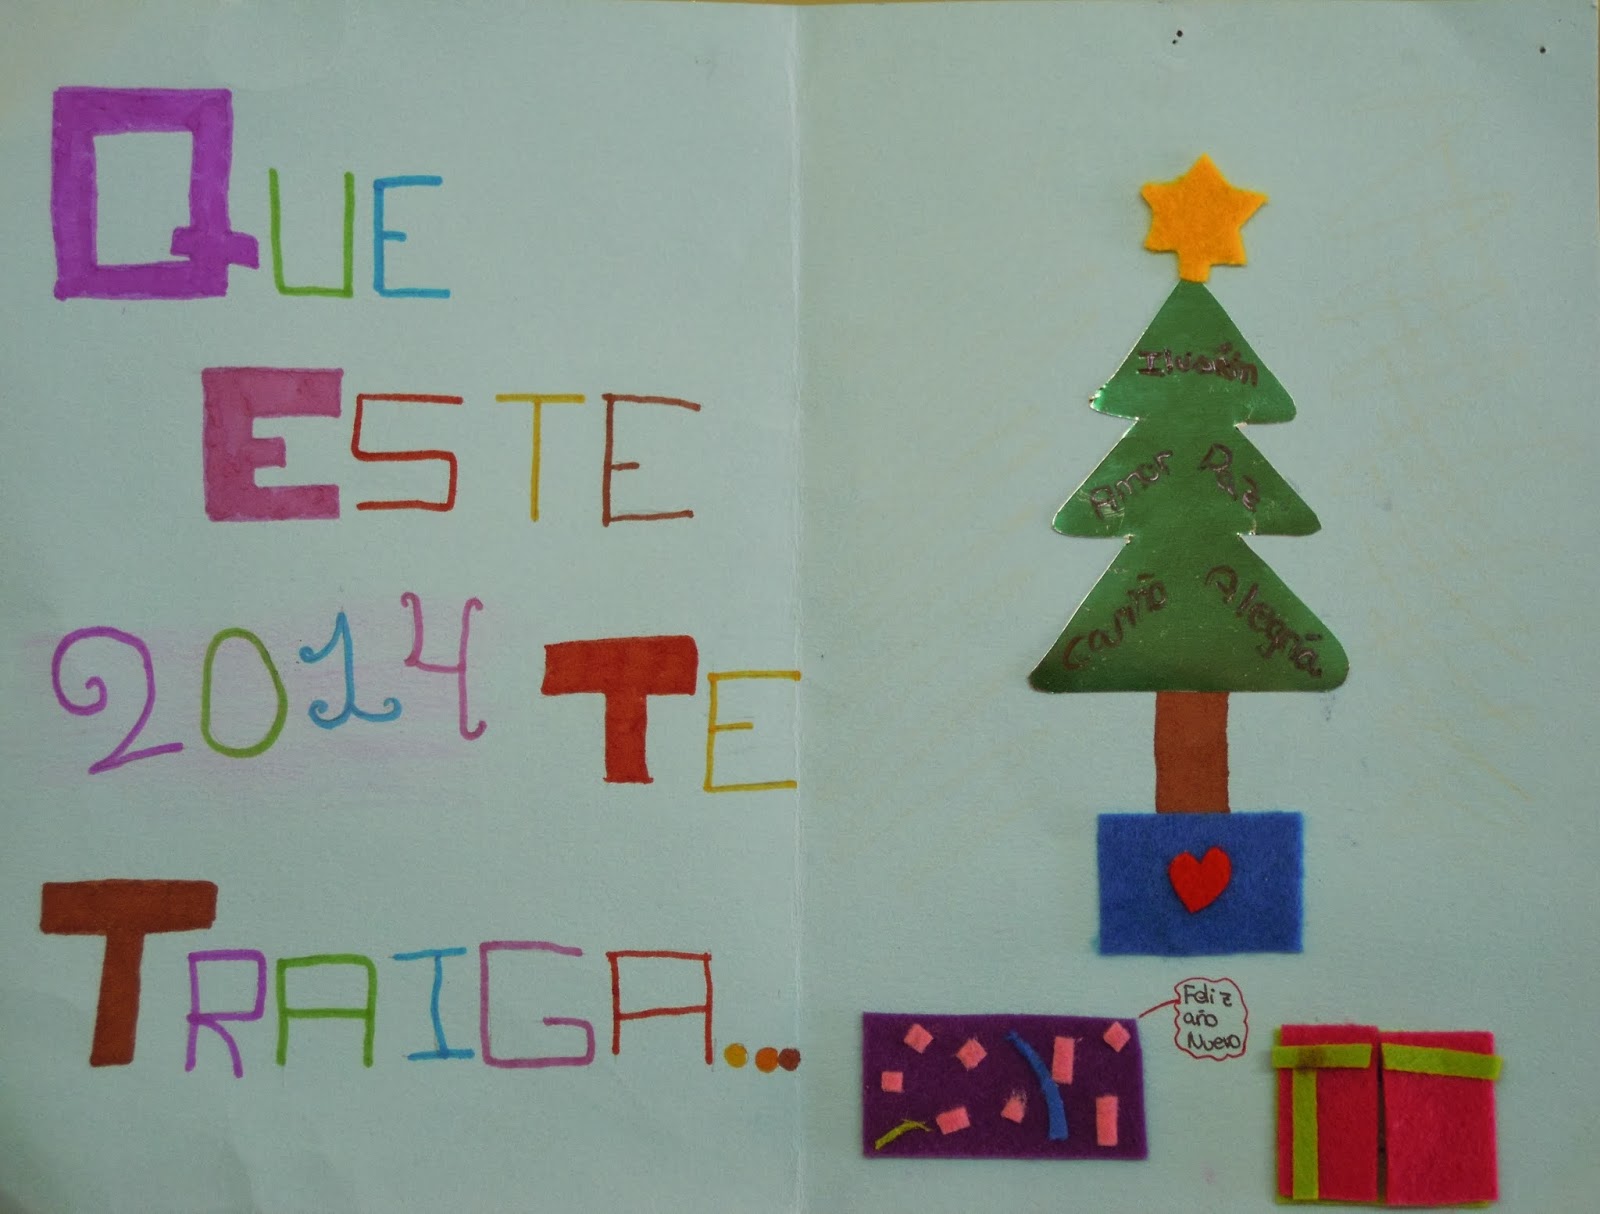 QUE
ESTE
2014 TE
TRAIGA...
Ilusión
Amor Paz
Cariño Alegría
Feliz
año
Nuevo